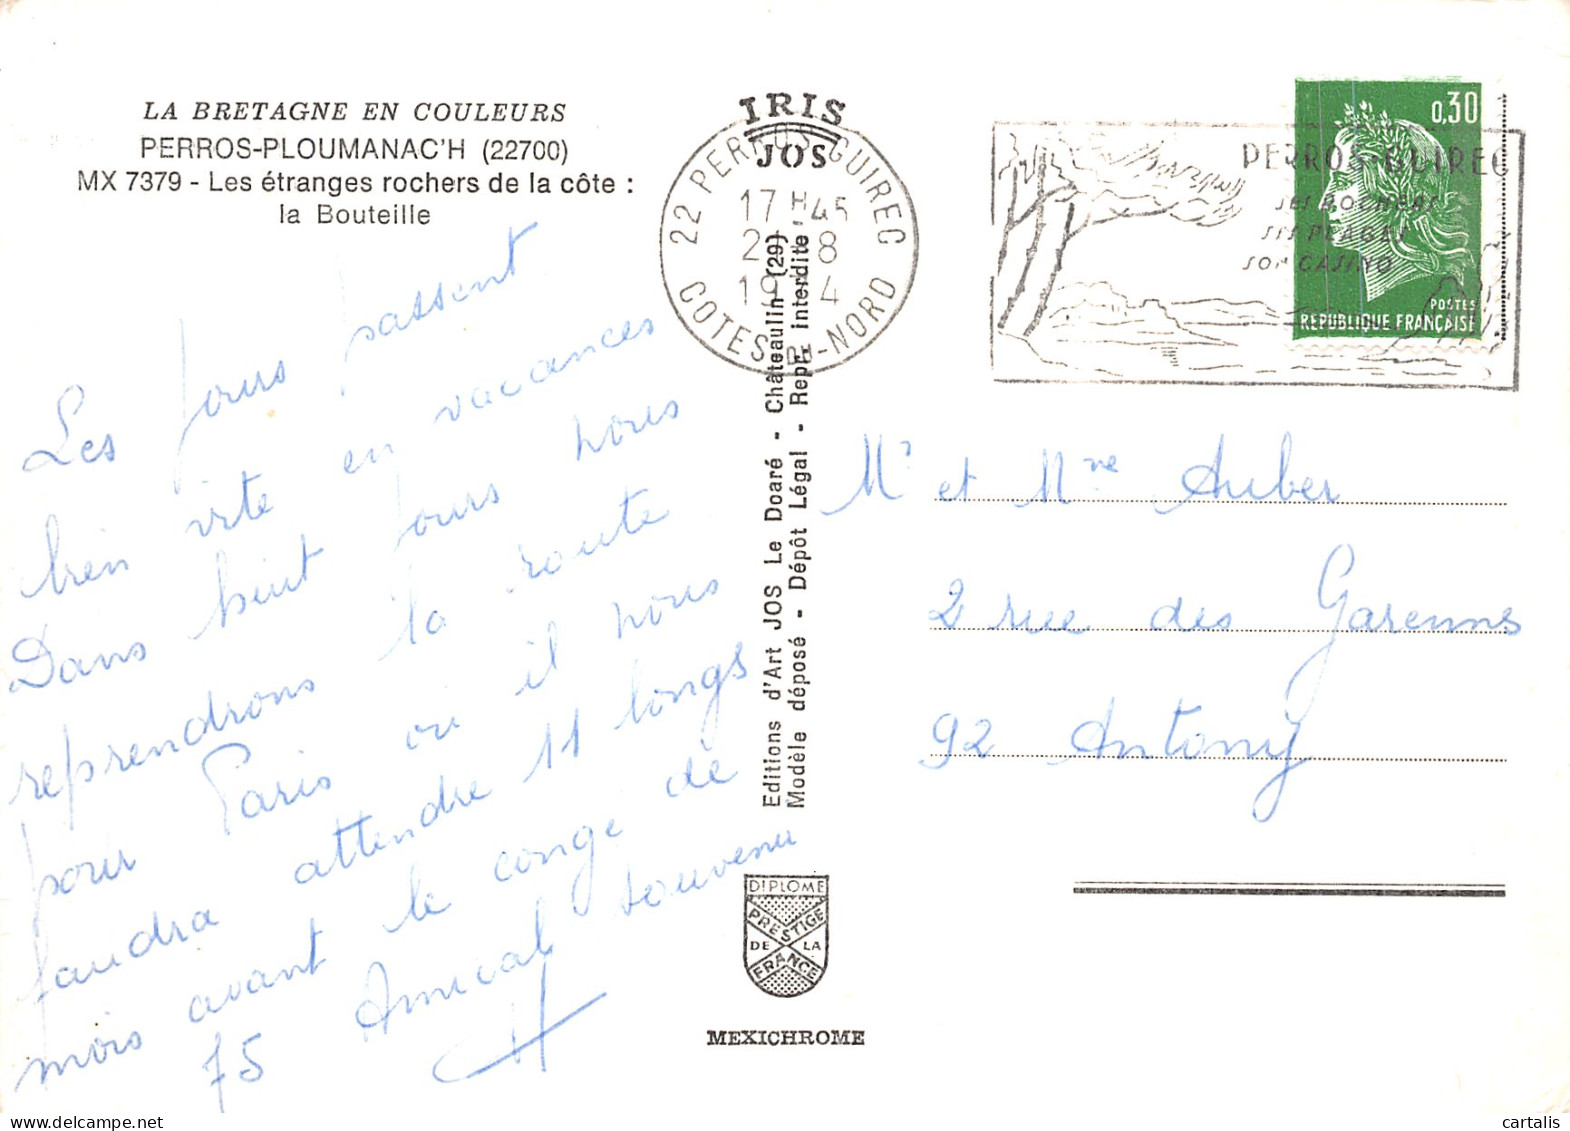 LA BRETAGNE EN COULEURS
PERROS-PLOUMANAC'H (22700)
MX 7379 - Les étranges rochers de la côte :
la Bouteille
IRIS
JOS
22 PERROS-GUIREC
17 H 45
8
COTES-DU-NORD
PERROS-GUIREC
SES ROCHERS
SES PLAGES
SON CASINO
0,30
POSTES
REPUBLIQUE FRANÇAISE
Les jours passent
bien vite en vacances
Dans huit jours nous
reprendrons la route
pour Paris où il nous
faudra attendre 11 longs
mois avant le congé de
75 Amical souvenir
Editions d'Art JOS Le Doaré - Châteaulin (29)
Modèle déposé - Dépôt Légal - Repr. interdite
Mr et Mme Auber
2 rue des Garennes
92 Antony
DIPLOME
PRESTIGE
DE LA
FRANCE
MEXICHROME
cartalis